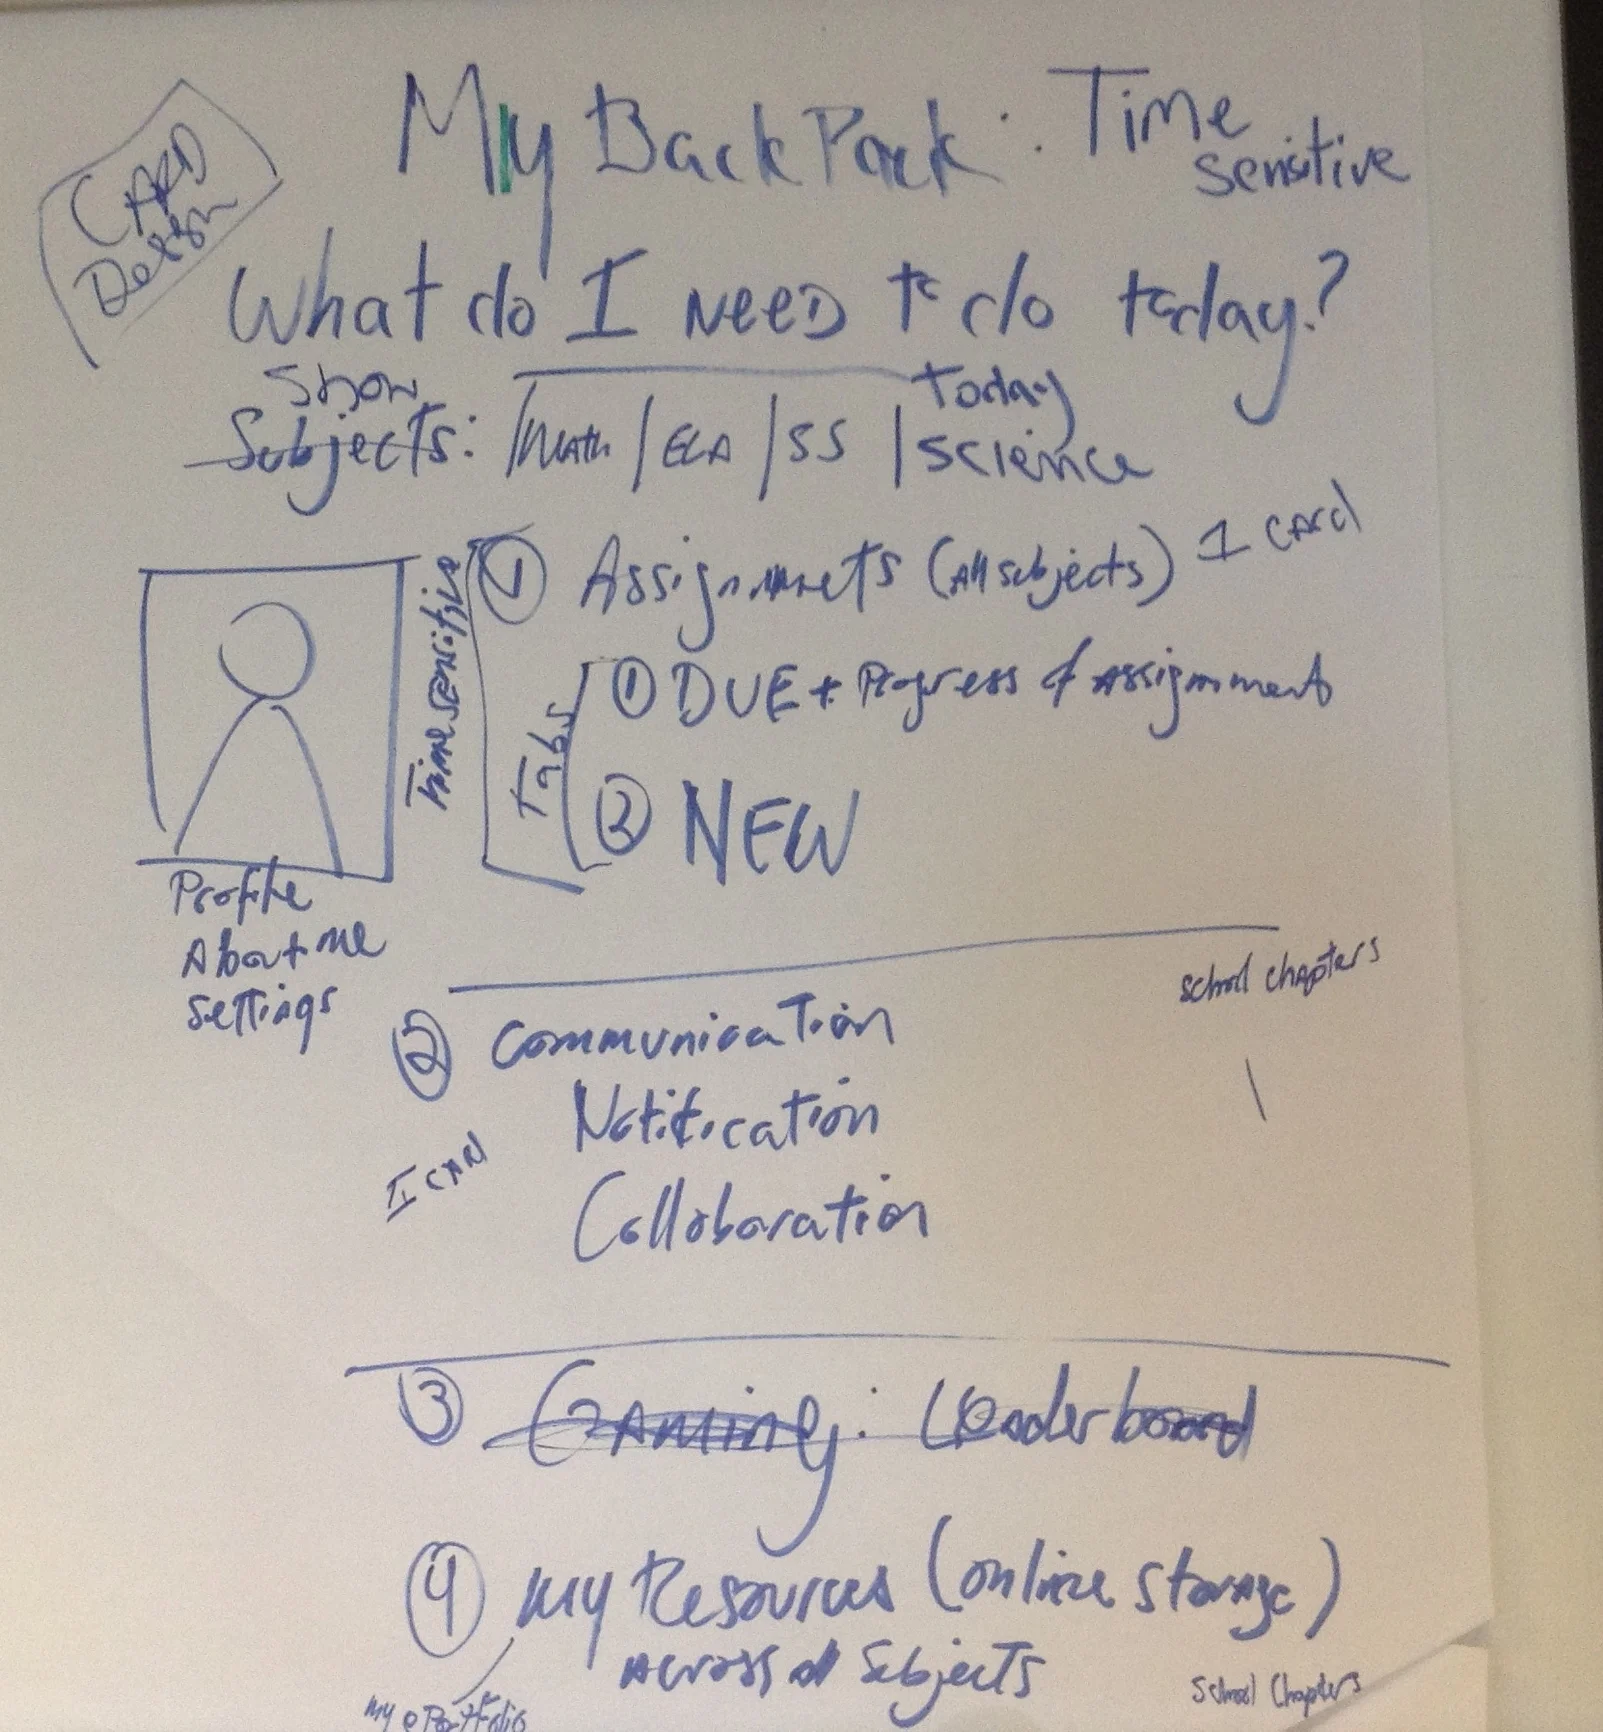 CARD
Design
My BackPack : Time
sensitive
What do I NEED to do today?
Show
today
Subjects: / Math / ELA / SS / Science
① Assignments (All subjects) 1 CARD
Time sensitive
Tabs
① DUE + Progress of Assignment
② NEW
Profile
About me
Settings
School Chapters
② Communication
Notification
Collaboration
I CAN
③ Gaming: Leaderboard
④ My Resources (online storage)
Across all Subjects
My ePortfolio
School Chapters